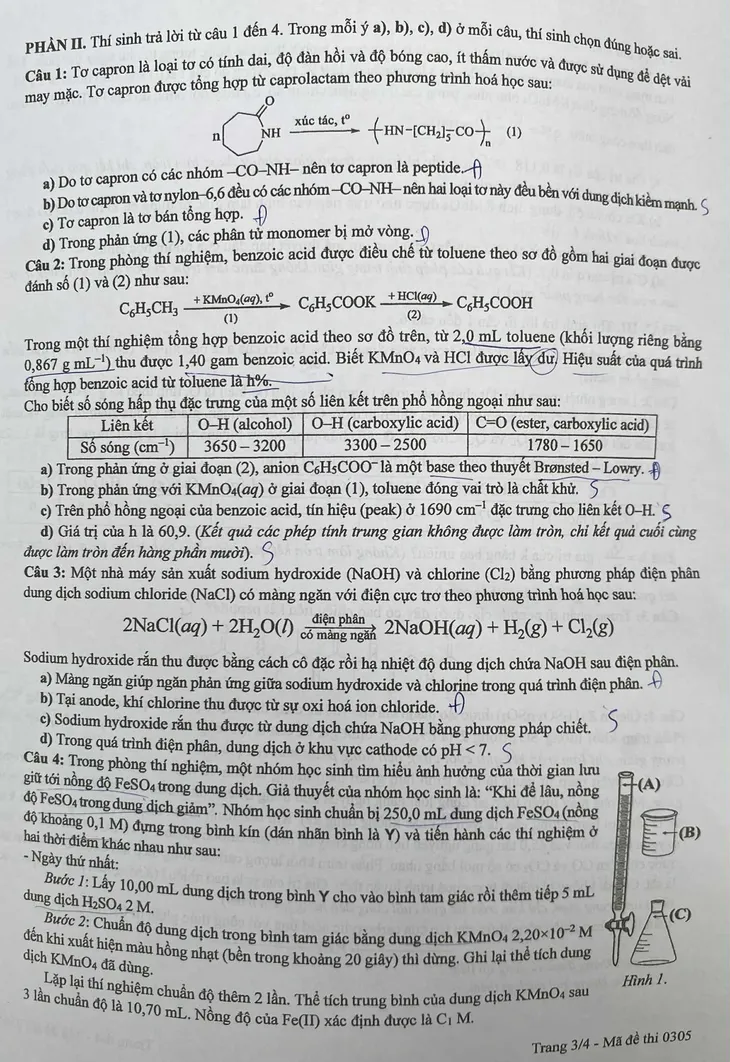 PHẦN II. Thí sinh trả lời từ câu 1 đến 4. Trong mỗi ý a), b), c), d) ở mỗi câu, thí sinh chọn đúng hoặc sai.
Câu 1: Tơ capron là loại tơ có tính dai, độ đàn hồi và độ bóng cao, ít thấm nước và được sử dụng để dệt vải
may mặc. Tơ capron được tổng hợp từ caprolactam theo phương trình hoá học sau:
n O NH xúc tác, t° (HN–[CH₂]₅–CO)ₙ (1)
a) Do tơ capron có các nhóm –CO–NH– nên tơ capron là peptide. Đ
b) Do tơ capron và tơ nylon–6,6 đều có các nhóm –CO–NH– nên hai loại tơ này đều bền với dung dịch kiềm mạnh. S
c) Tơ capron là tơ bán tổng hợp. Đ
d) Trong phản ứng (1), các phân tử monomer bị mở vòng. Đ
Câu 2: Trong phòng thí nghiệm, benzoic acid được điều chế từ toluene theo sơ đồ gồm hai giai đoạn được
đánh số (1) và (2) như sau:
C₆H₅CH₃ + KMnO₄(aq), t° (1) C₆H₅COOK + HCl(aq) (2) C₆H₅COOH
Trong một thí nghiệm tổng hợp benzoic acid theo sơ đồ trên, từ 2,0 mL toluene (khối lượng riêng bằng
0,867 g mL⁻¹) thu được 1,40 gam benzoic acid. Biết KMnO₄ và HCl được lấy dư. Hiệu suất của quá trình
tổng hợp benzoic acid từ toluene là h%.
Cho biết số sóng hấp thụ đặc trưng của một số liên kết trên phổ hồng ngoại như sau:
Liên kết O–H (alcohol) O–H (carboxylic acid) C=O (ester, carboxylic acid)
Số sóng (cm⁻¹) 3650 – 3200 3300 – 2500 1780 – 1650
a) Trong phản ứng ở giai đoạn (2), anion C₆H₅COO⁻ là một base theo thuyết Brønsted – Lowry. Đ
b) Trong phản ứng với KMnO₄(aq) ở giai đoạn (1), toluene đóng vai trò là chất khử. S
c) Trên phổ hồng ngoại của benzoic acid, tín hiệu (peak) ở 1690 cm⁻¹ đặc trưng cho liên kết O–H. S
d) Giá trị của h là 60,9. (Kết quả các phép tính trung gian không được làm tròn, chỉ kết quả cuối cùng
được làm tròn đến hàng phần mười). S
Câu 3: Một nhà máy sản xuất sodium hydroxide (NaOH) và chlorine (Cl₂) bằng phương pháp điện phân
dung dịch sodium chloride (NaCl) có màng ngăn với điện cực trơ theo phương trình hoá học sau:
2NaCl(aq) + 2H₂O(l) điện phân có màng ngăn 2NaOH(aq) + H₂(g) + Cl₂(g)
Sodium hydroxide rắn thu được bằng cách cô đặc rồi hạ nhiệt độ dung dịch chứa NaOH sau điện phân.
a) Màng ngăn giúp ngăn phản ứng giữa sodium hydroxide và chlorine trong quá trình điện phân. Đ
b) Tại anode, khí chlorine thu được từ sự oxi hoá ion chloride. Đ
c) Sodium hydroxide rắn thu được từ dung dịch chứa NaOH bằng phương pháp chiết. S
d) Trong quá trình điện phân, dung dịch ở khu vực cathode có pH < 7. S
Câu 4: Trong phòng thí nghiệm, một nhóm học sinh tìm hiểu ảnh hưởng của thời gian lưu
giữ tới nồng độ FeSO₄ trong dung dịch. Giả thuyết của nhóm học sinh là: “Khi để lâu, nồng
độ FeSO₄ trong dung dịch giảm”. Nhóm học sinh chuẩn bị 250,0 mL dung dịch FeSO₄ (nồng
độ khoảng 0,1 M) đựng trong bình kín (dán nhãn bình là Y) và tiến hành các thí nghiệm ở
hai thời điểm khác nhau như sau:
- Ngày thứ nhất:
Bước 1: Lấy 10,00 mL dung dịch trong bình Y cho vào bình tam giác rồi thêm tiếp 5 mL
dung dịch H₂SO₄ 2 M.
Bước 2: Chuẩn độ dung dịch trong bình tam giác bằng dung dịch KMnO₄ 2,20×10⁻² M
đến khi xuất hiện màu hồng nhạt (bền trong khoảng 20 giây) thì dừng. Ghi lại thể tích dung
dịch KMnO₄ đã dùng.
Lặp lại thí nghiệm chuẩn độ thêm 2 lần. Thể tích trung bình của dung dịch KMnO₄ sau
3 lần chuẩn độ là 10,70 mL. Nồng độ của Fe(II) xác định được là C₁ M.
(A)
(B)
(C)
Hình 1.
Trang 3/4 - Mã đề thi 0305